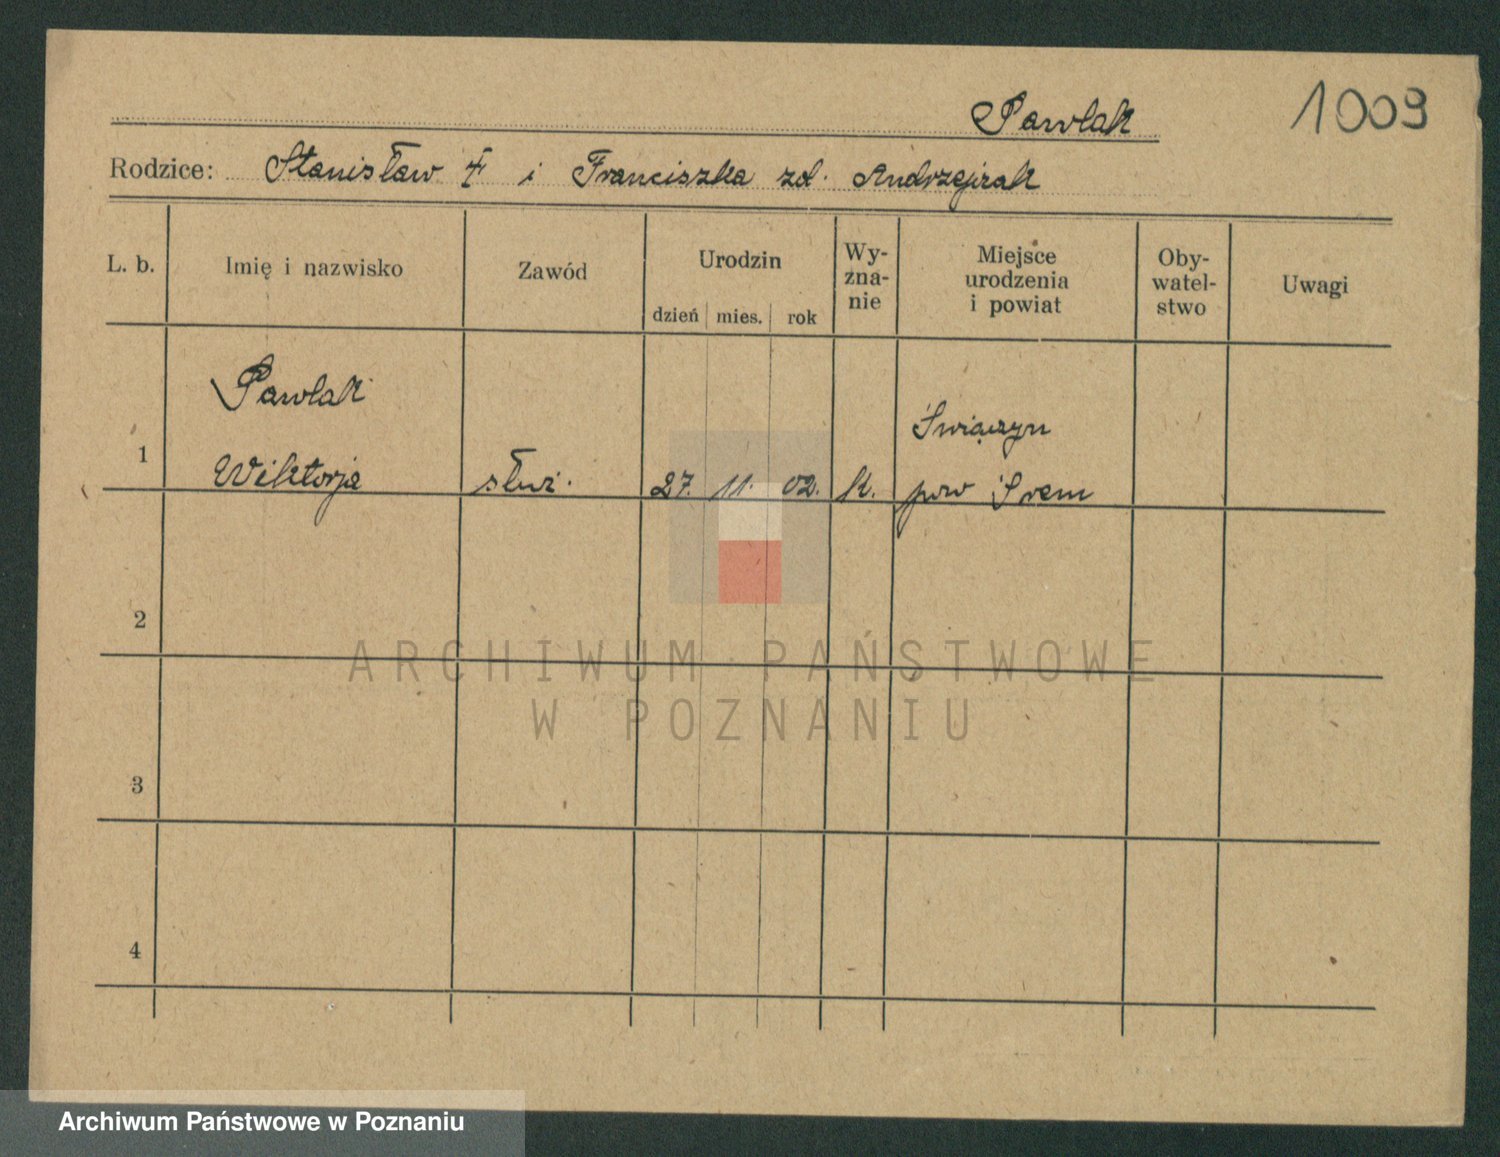 1009
Pawlak
Rodzice: Stanisław † i Franciszka zd. Andrzejczak
L. b. Imię i nazwisko Zawód Urodzin dzień mies. rok Wy-zna-nie Miejsce urodzenia i powiat Oby-watel-stwo Uwagi
Pawlak
Świączyn
1 Wiktorja służ. 27. 11. 02. k. pow Śrem
2
3
4
ARCHIWUM PAŃSTWOWE
W POZNANIU
Archiwum Państwowe w Poznaniu